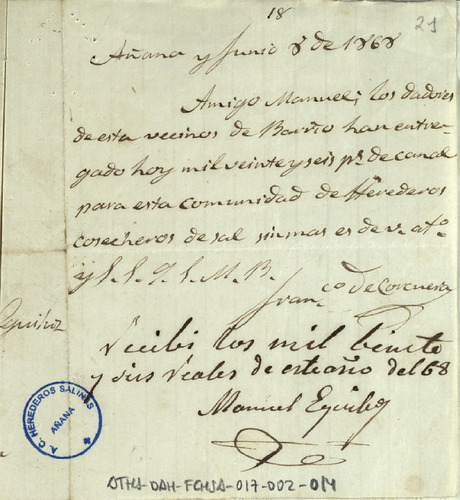 18
21
Añana y Junio 8 de 1868
Amigo Manuel; los dadores
de esta vecinos de Barrio han entre-
gado hoy mil veinte y seis ps. de canal
para esta comunidad de Herederos
cosecheros de sal sin mas es de v. atº
y S. S. Q. S. M. B.
Franco. de Corcuera
Recibi los mil beinte
y seis reales de este año del 68
Manuel Eguiluz
Eguiluz
A. C. HEREDEROS SALINAS
AÑANA
ATHA-DAH-FGHSA-017-002-014